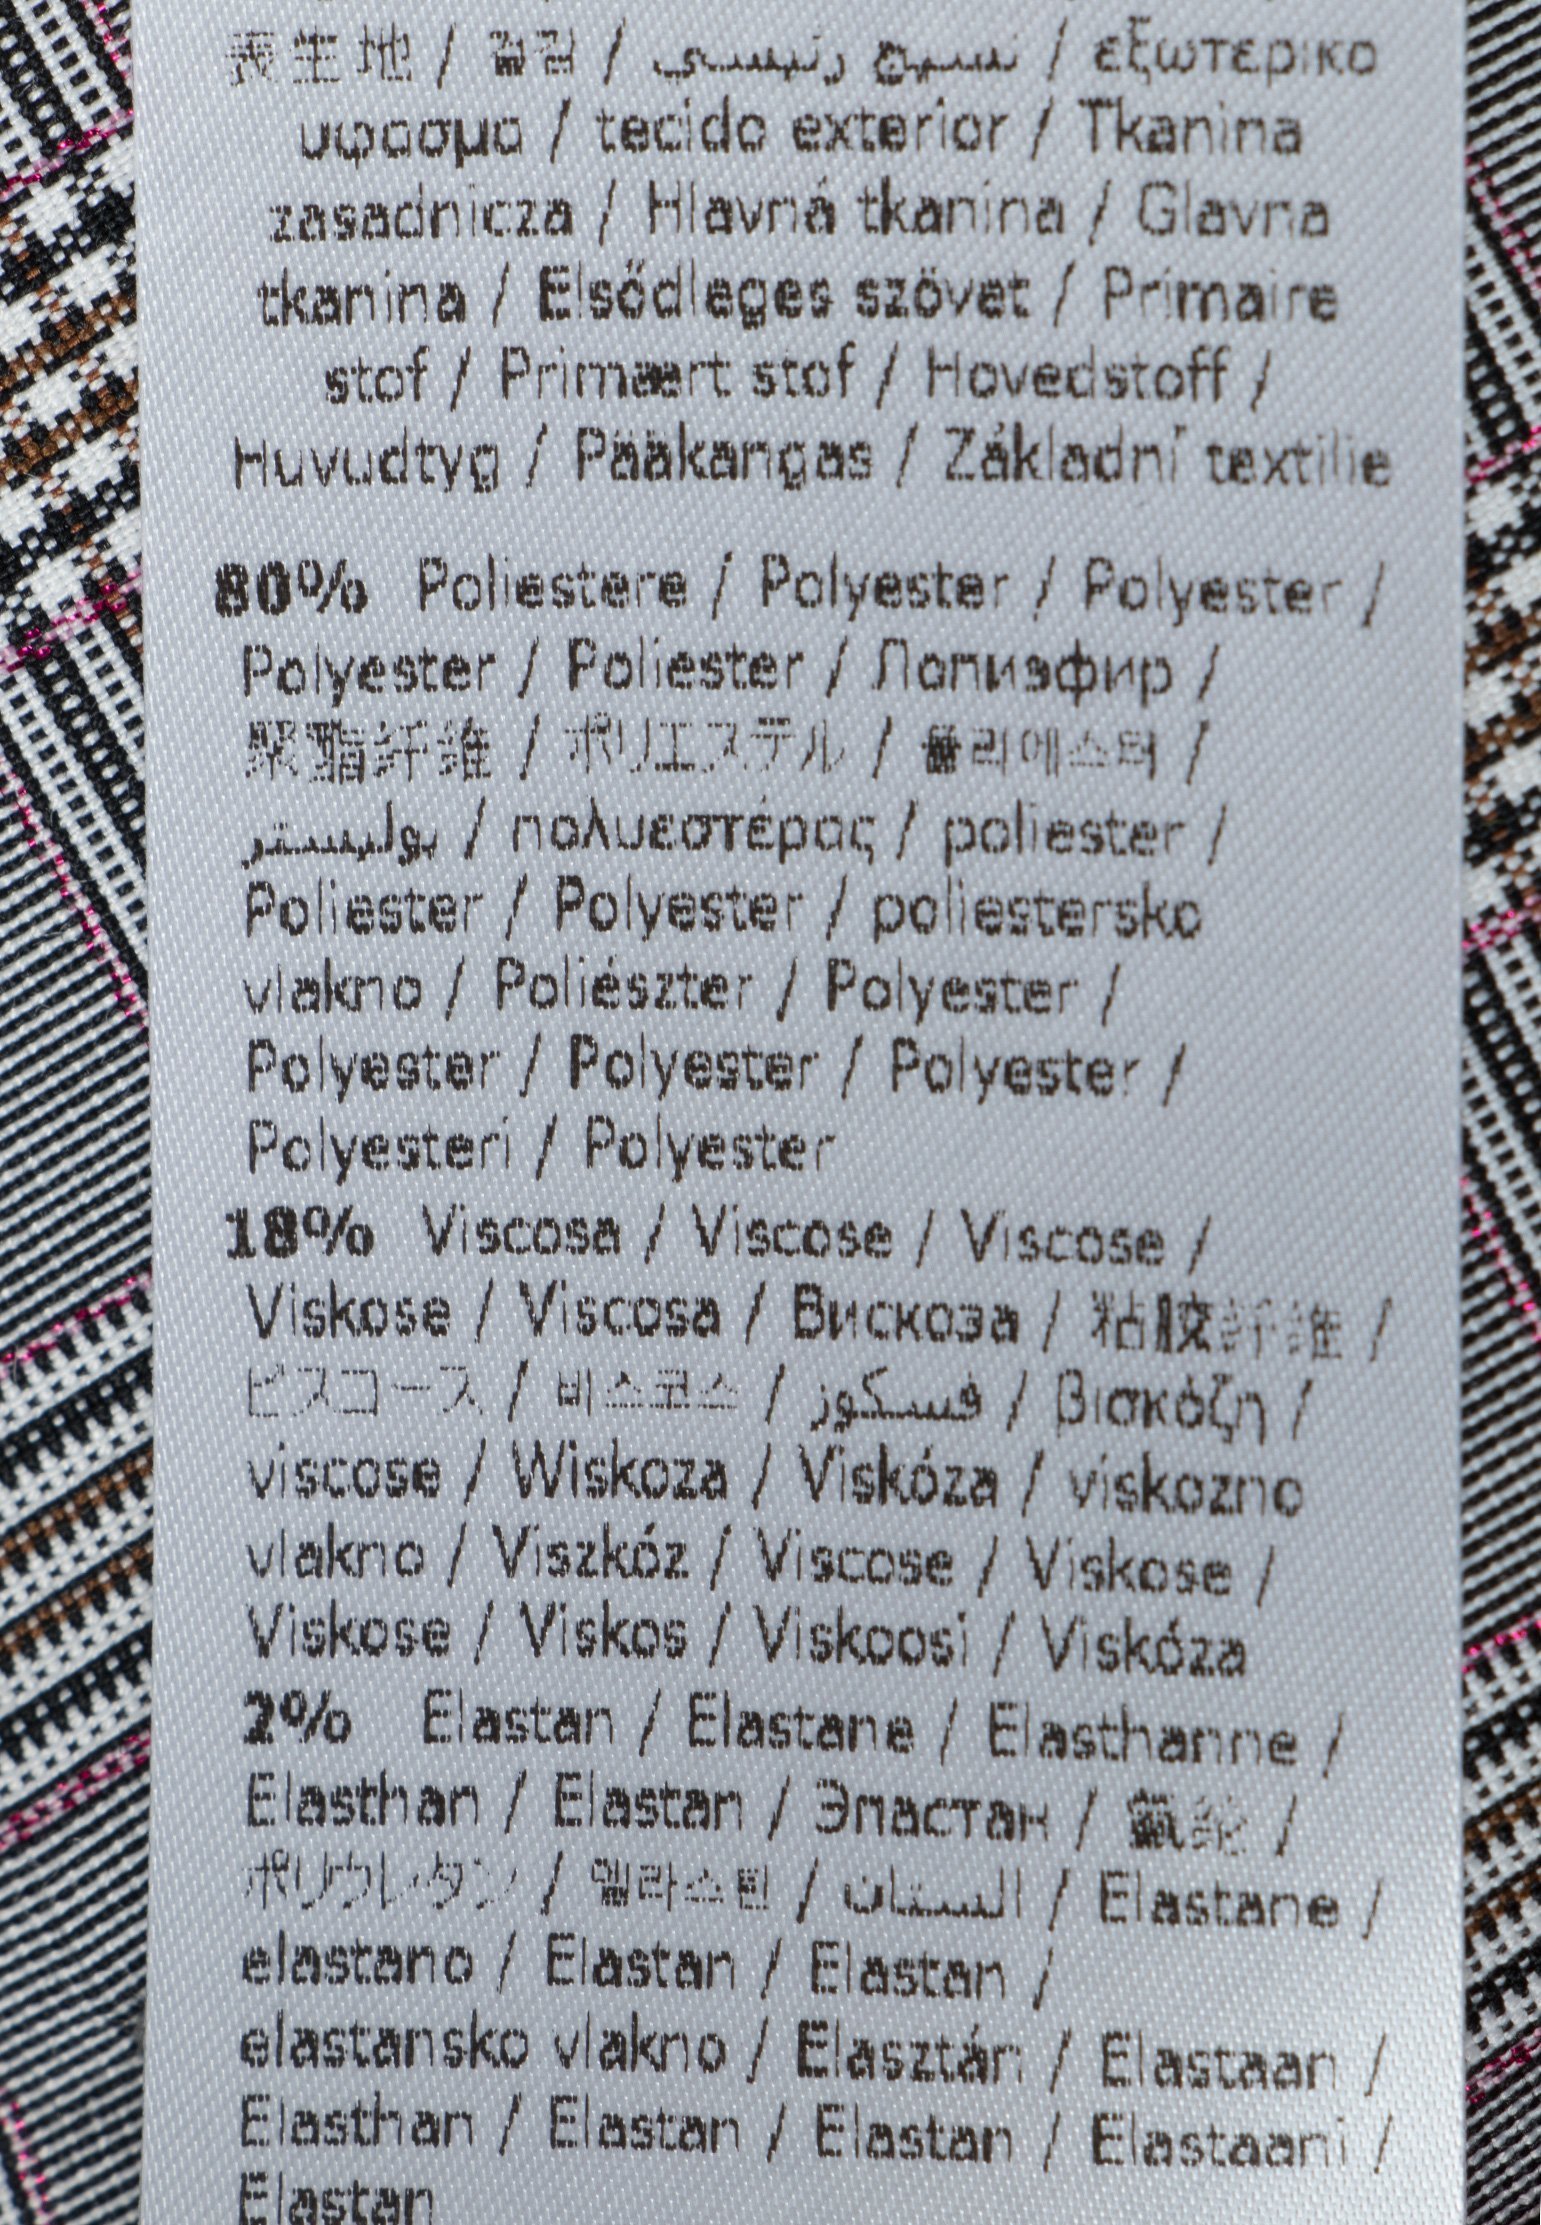 表生地 / 겉감 / نسيج رئيسي / εξωτερικο
υφασμα / tecido exterior / Tkanina
zasadnicza / Hlavná tkanina / Glavna
tkanina / Elsődleges szövet / Primaire
stof / Primaert stof / Hovedstoff /
Huvudtyg / Pääkangas / Základní textilie
80% Poliestere / Polyester / Polyester /
Polyester / Poliester / Полиэфир /
聚酯纤维 / ポリエステル / 폴리에스터 /
بوليستر / πολυεστέρας / poliester /
Poliester / Polyester / poliestersko
vlakno / Poliészter / Polyester /
Polyester / Polyester / Polyester /
Polyesteri / Polyester
18% Viscosa / Viscose / Viscose /
Viskose / Viscosa / Вискоза / 粘胶纤维 /
ビスコース / 비스코스 / فسكوز / βισκόζη /
viscose / Wiskoza / Viskóza / viskozno
vlakno / Viszkóz / Viscose / Viskose /
Viskose / Viskos / Viskoosi / Viskóza
2% Elastan / Elastane / Elasthanne /
Elasthan / Elastan / Эластан / 氨纶 /
ポリウレタン / 엘라스탄 / الستان / Elastane /
elastano / Elastan / Elastan /
elastansko vlakno / Elasztán / Elastaan /
Elasthan / Elastan / Elastan / Elastaani /
Elastan